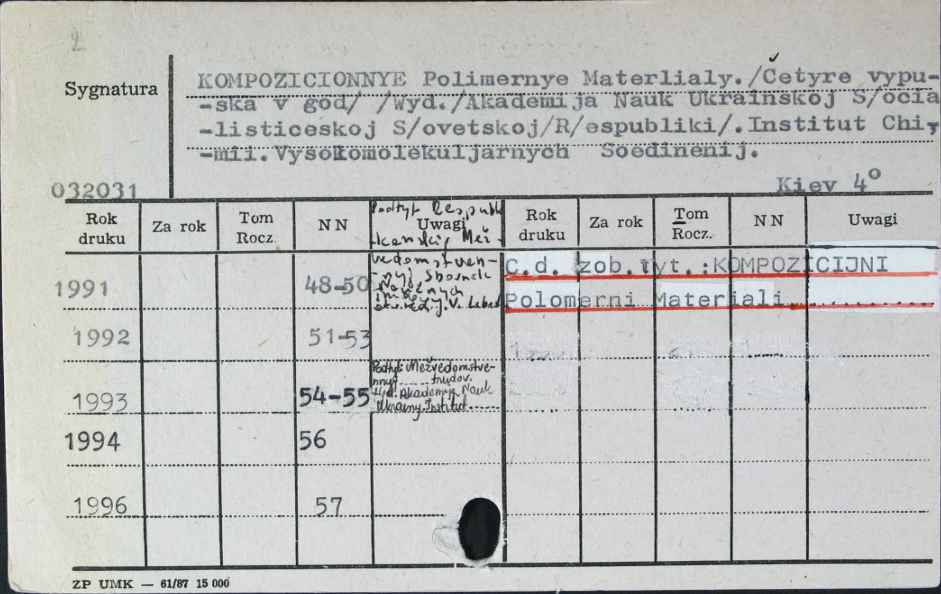 2
Sygnatura
KOMPOZICIONNYE Polimernye Materlialy./Četyre vypu-
-ska v god/ /Wyd./Akademija Nauk Ukrainskoj S/ocia
-listiceskoj S/ovetskoj/R/espubliki/.Institut Chi,
-mii.Vysokomolekuljarnych Soedinenij.
032031
Kiev 4°
Rok druku Za rok Tom Rocz. N N Uwagi Rok druku Za rok Tom Rocz. N N Uwagi
Podtyt. Respubli
kanskij Mež
vedomstven-
nyj sbornik
naučnych
1991 48-50
C.d. zob.tyt.:KOMPOZICIJNI
Polomerni Materiali
1992 51-53
1993 54-55
Podtyt: Mežvedomstve-
nnyj trudov.
Wyd. Akademija Nauk
Ukrainy.Institut
1994 56
1996 57
ZP UMK — 61/87 15 000